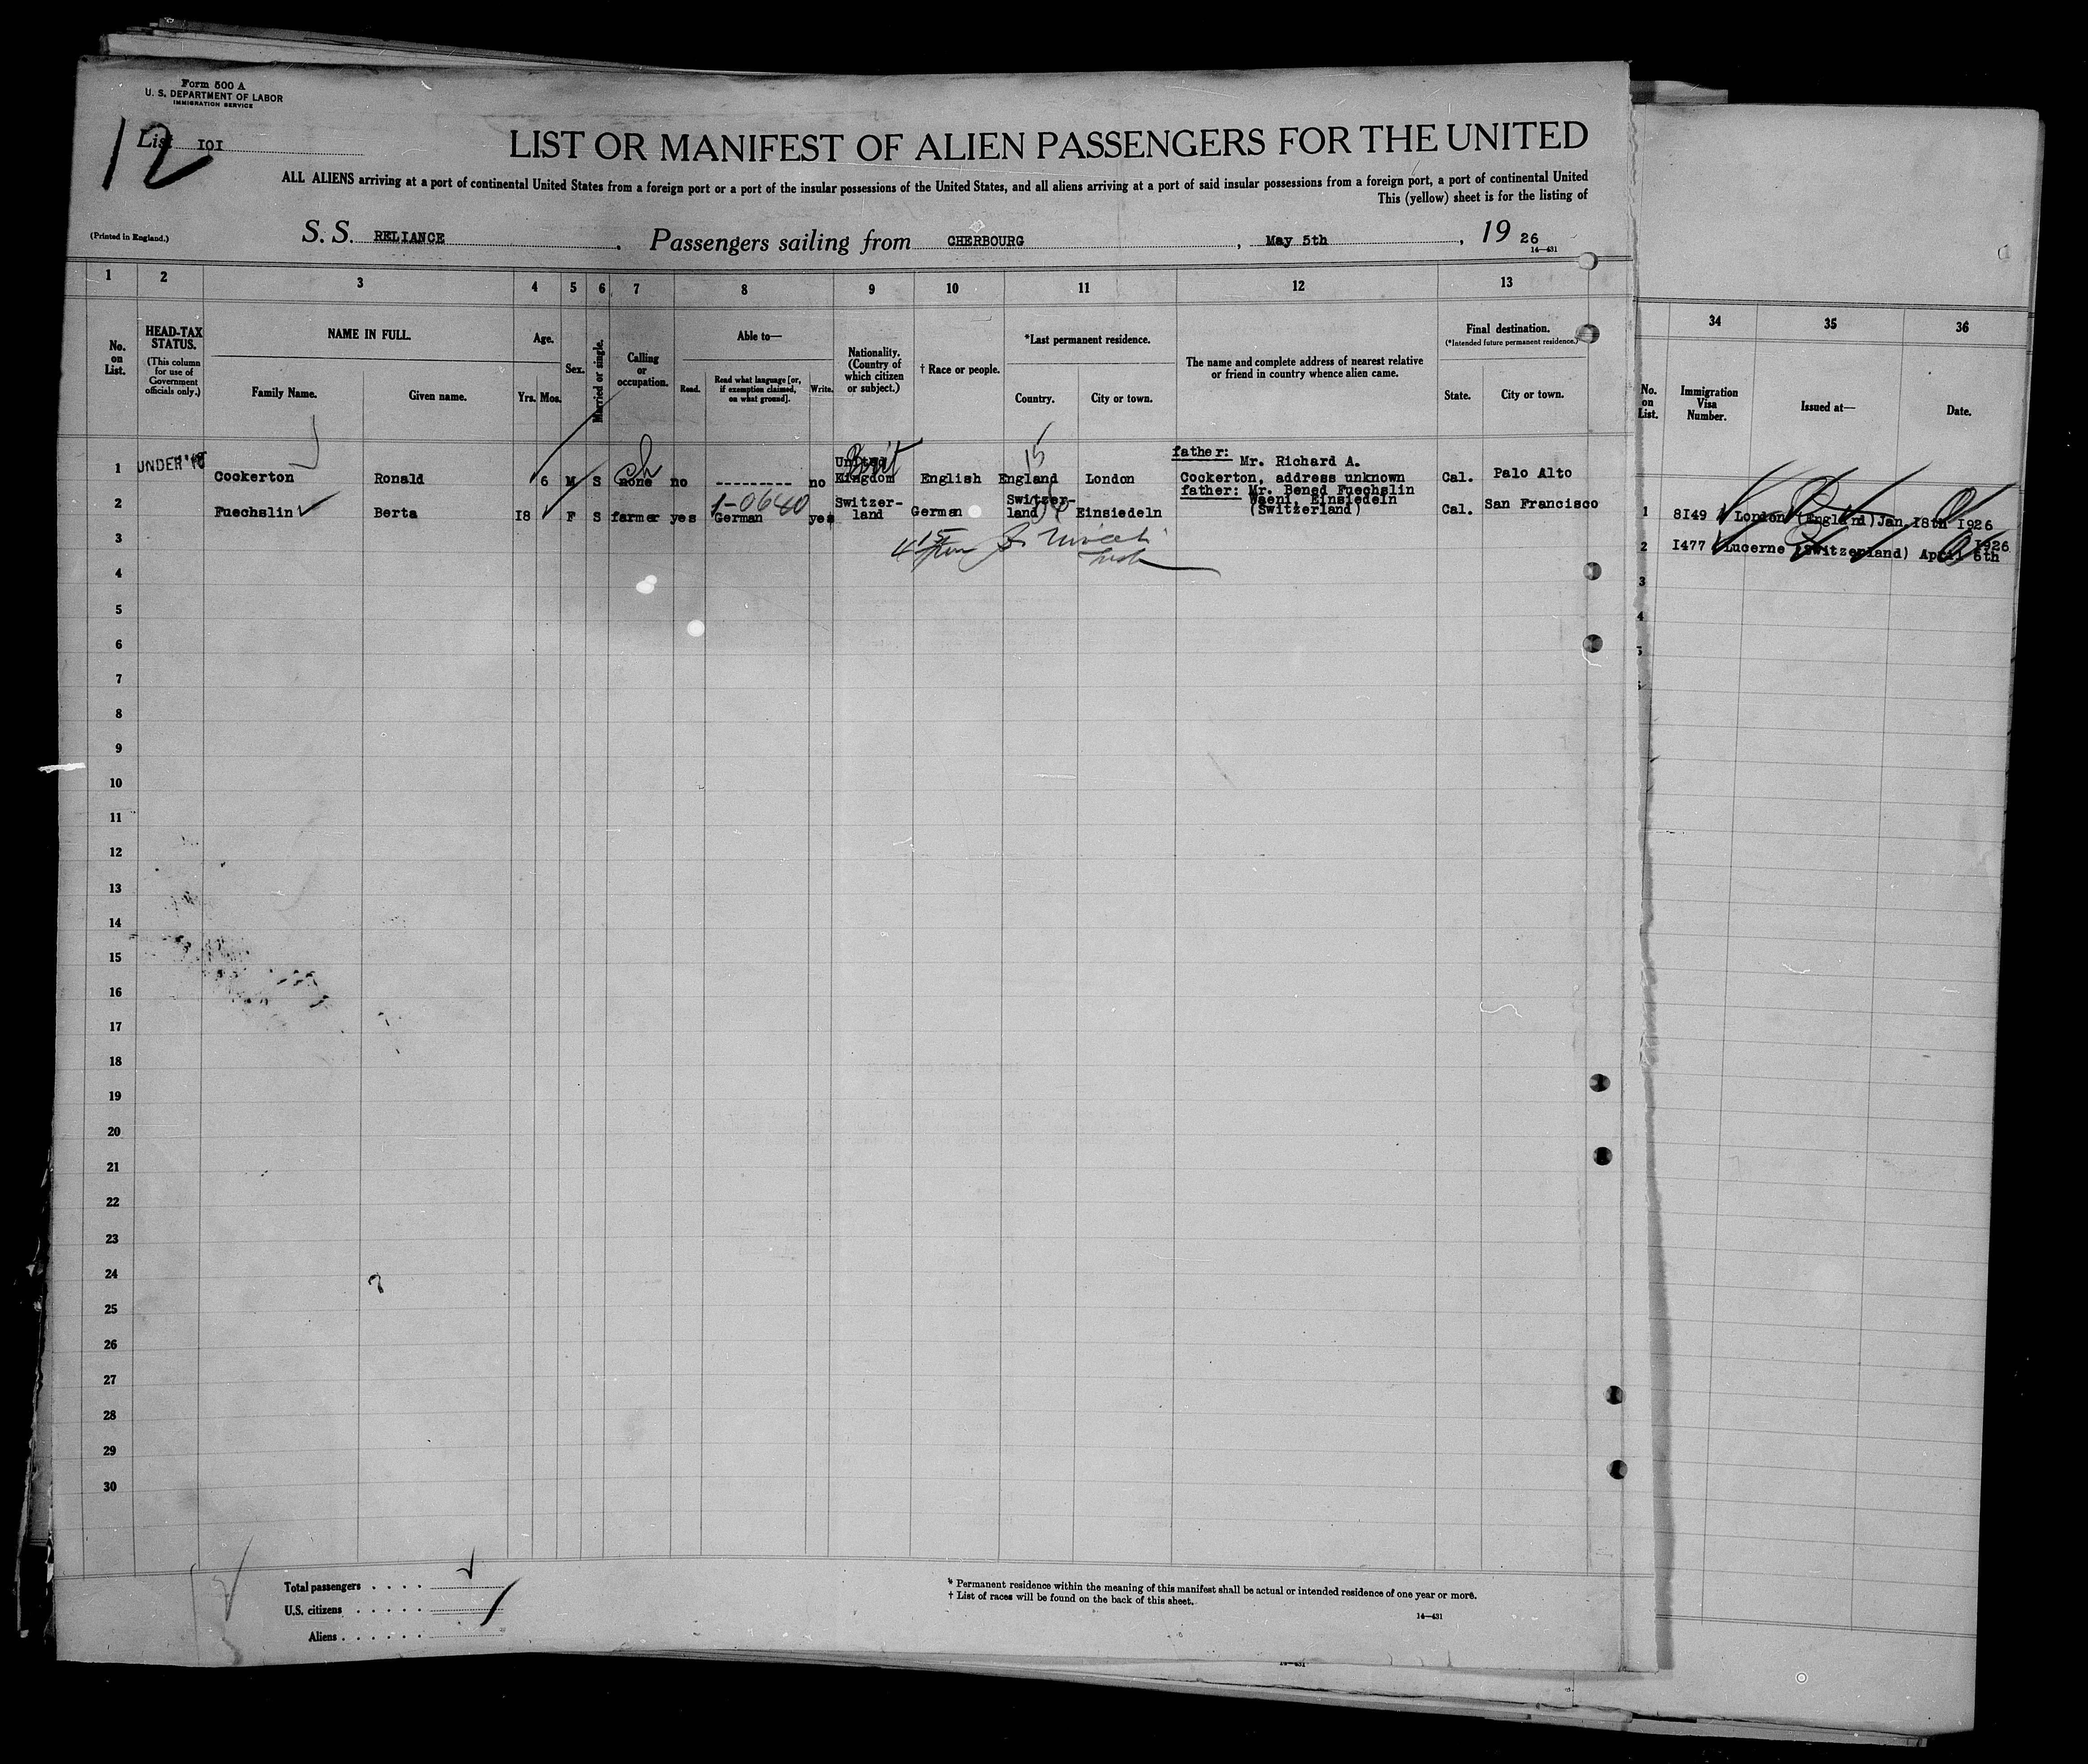 Form 500 A
U. S. DEPARTMENT OF LABOR
IMMIGRATION SERVICE
12
List IOI
LIST OR MANIFEST OF ALIEN PASSENGERS FOR THE UNITED
ALL ALIENS arriving at a port of continental United States from a foreign port or a port of the insular possessions of the United States, and all aliens arriving at a port of said insular possessions from a foreign port, a port of continental United
This (yellow) sheet is for the listing of
(Printed in England.)
S. S. RELIANCE, Passengers sailing from CHERBOURG, May 5th, 19 26
14—431
1 2 3 4 5 6 7 8 9 10 11 12 13
No. on List.
HEAD-TAX STATUS.
(This column for use of Government officials only.)
NAME IN FULL.
Family Name. Given name.
Age.
Yrs. Mos.
Sex.
Married or single.
Calling or occupation.
Able to—
Read. Read what language [or, if exemption claimed, on what ground]. Write.
Nationality. (Country of which citizen or subject.)
† Race or people.
*Last permanent residence.
Country. City or town.
The name and complete address of nearest relative or friend in country whence alien came.
Final destination.
(*Intended future permanent residence.)
State. City or town.
34 35 36
No. on List.
Immigration Visa Number.
Issued at—
Date.
1 UNDER 16 Cockerton Ronald 6 M S none ch no ---------- no United Kingdom Brit English England 15 London father: Mr. Richard A. Cockerton, address unknown Cal. Palo Alto
2 Fuechslin Berta I8 F S farmer yes 1-0640 German yes Switzer-land German Switzer-land Einsiedeln father: Mr. Bened Fuechslin Waeni, Einsiedeln (Switzerland) Cal. San Francisco
1 8I49 London (England) Jan. I8th I926
2 I477 Lucerne (Switzerland) April 6th I926
3
4
5
6
7
8
9
10
11
12
13
14
15
16
17
18
19
20
21
22
23
24
25
26
27
28
29
30
3
4
5
Total passengers . . . .
U.S. citizens . . . . .
Aliens . . . . . .
* Permanent residence within the meaning of this manifest shall be actual or intended residence of one year or more.
† List of races will be found on the back of this sheet.
14—431
14—431